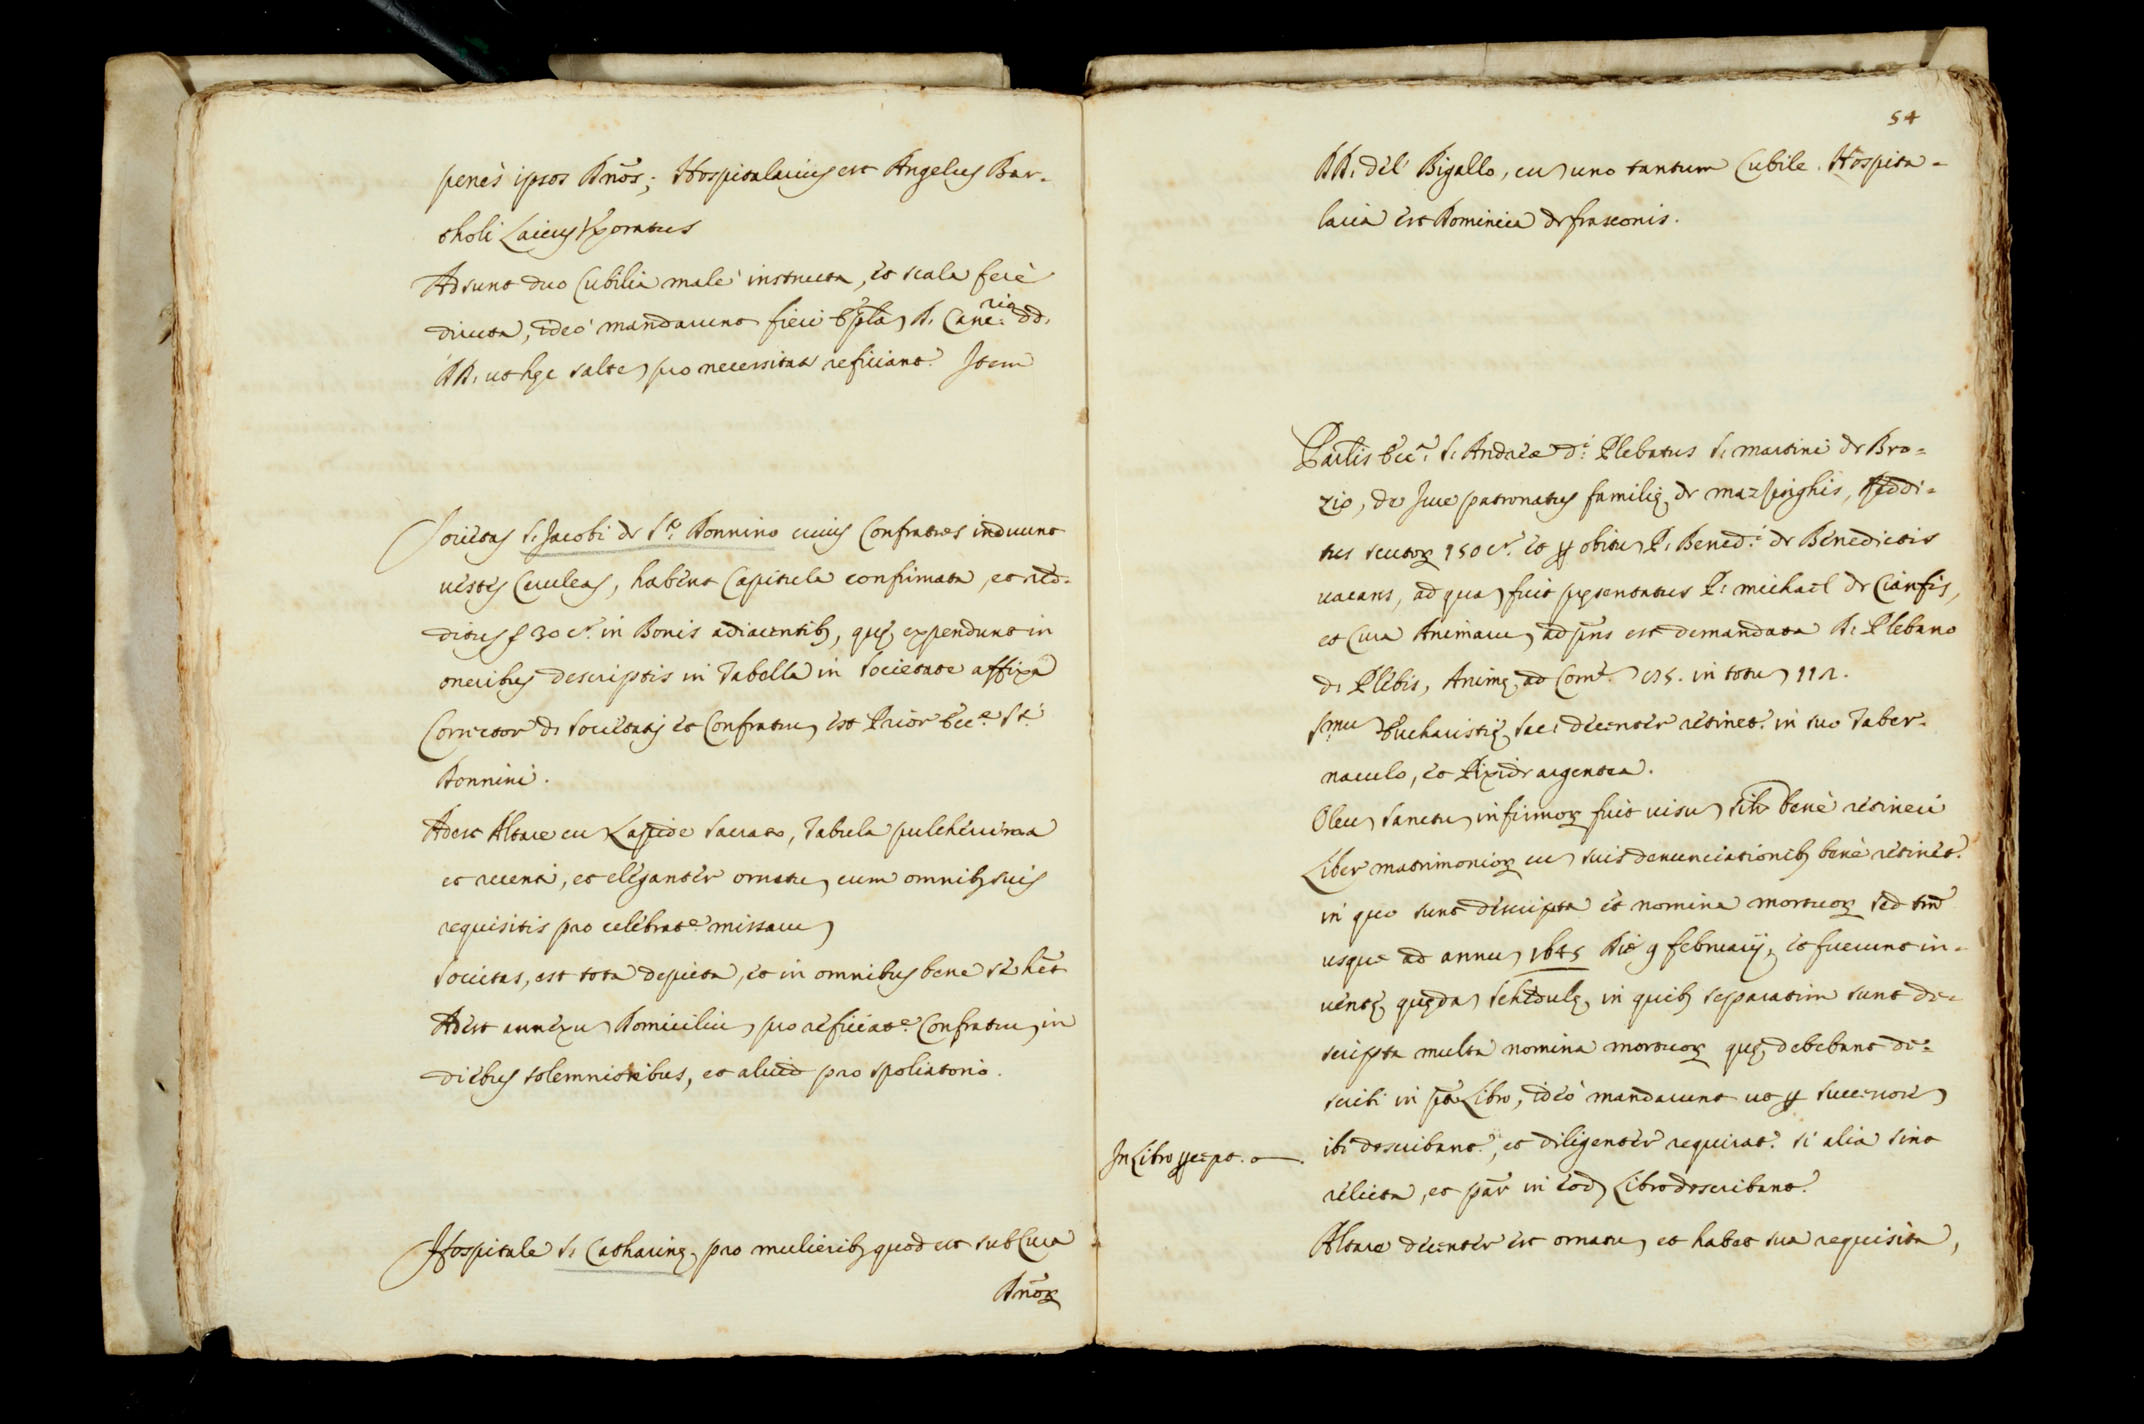 penès ipsos Dños; Hospitalarius est Angelus Bar-
tholi Laicus Vxoratus
Adsunt duo Cubilia malè instructa, et scala ferè
diruta, ideò mandarunt fieri D. Canc.ria dd.
DD. ut hęc saltem pro necessitate reficiant.r Item
Societas S. Jacobi de S.to Donnino cuius Confratres induunt
vestes Ceruleas, habent Capitula confirmata, et red-
ditus f 30 c.a in Bonis adiacentibus, quę expendunt in
oneribus descriptis in Tabella in Societate affixa
Corrector d. Societatis et Confratrum est Prior Ecc.e S.ti
Donnini.
Adest Altare cum Lapide Sacrato, Tabula pulcherrima
et recenti, et eleganter ornatum, cum omnibus suis
requisitis pro celebrat.e missarum
Societas, est tota depicta, et in omnibus bene se het
Adest annexum Domicilium pro reficiat.e Confratrum in
diebus solemnioribus, et aliud pro spoliatorio.
Hospitale S. Catharinę pro mulieribus quod est sub Cura
Dñorum
54
DD. del Bigallo, cum uno tantum Cubile. Hospita-
laria est Dominica de frasconis.
Par.lis Ecc.a S. Andreæ d.i Plebatus S. martini de Bro-
zio, de Jure patronatus familię de mazzinghis, Reddi-
tus scutorum 150 c.a et per obitum P. Bened.i de Benedictis
vacans, ad quam fuit pręsentatus P. michael de Cianfis,
et Cura Animarum ad pñs est demandata D. Plebano
d. Plebis, Animę ad Com.e 75. in totum 112.
S.mum Eucharistię Sac. decenter retinet.r in suo Taber-
naculo, et Pixide argentea.
Oleum Sanctum infirmorum fuit visum bene retineri
Liber matrimoniorum cum suis denunciationibus bene retinet.r
in quo sunt descripta et nomina mortuorum sed tñ
usque ad annum 1645 Die 9 februarij, et fuerunt in-
ventę quędam Schedulę, in quibus separatim sunt de-
scripta multa nomina mortuorum quę debebant de-
scribi in pto Libro, ideò mandarunt ut per successorem
ibi describant.r, et diligenter requirat.r si alia sint
relicta, et par.r in eodem Libro describant.r
In Libro
Altare decenter est ornatum et habet sua requisita,